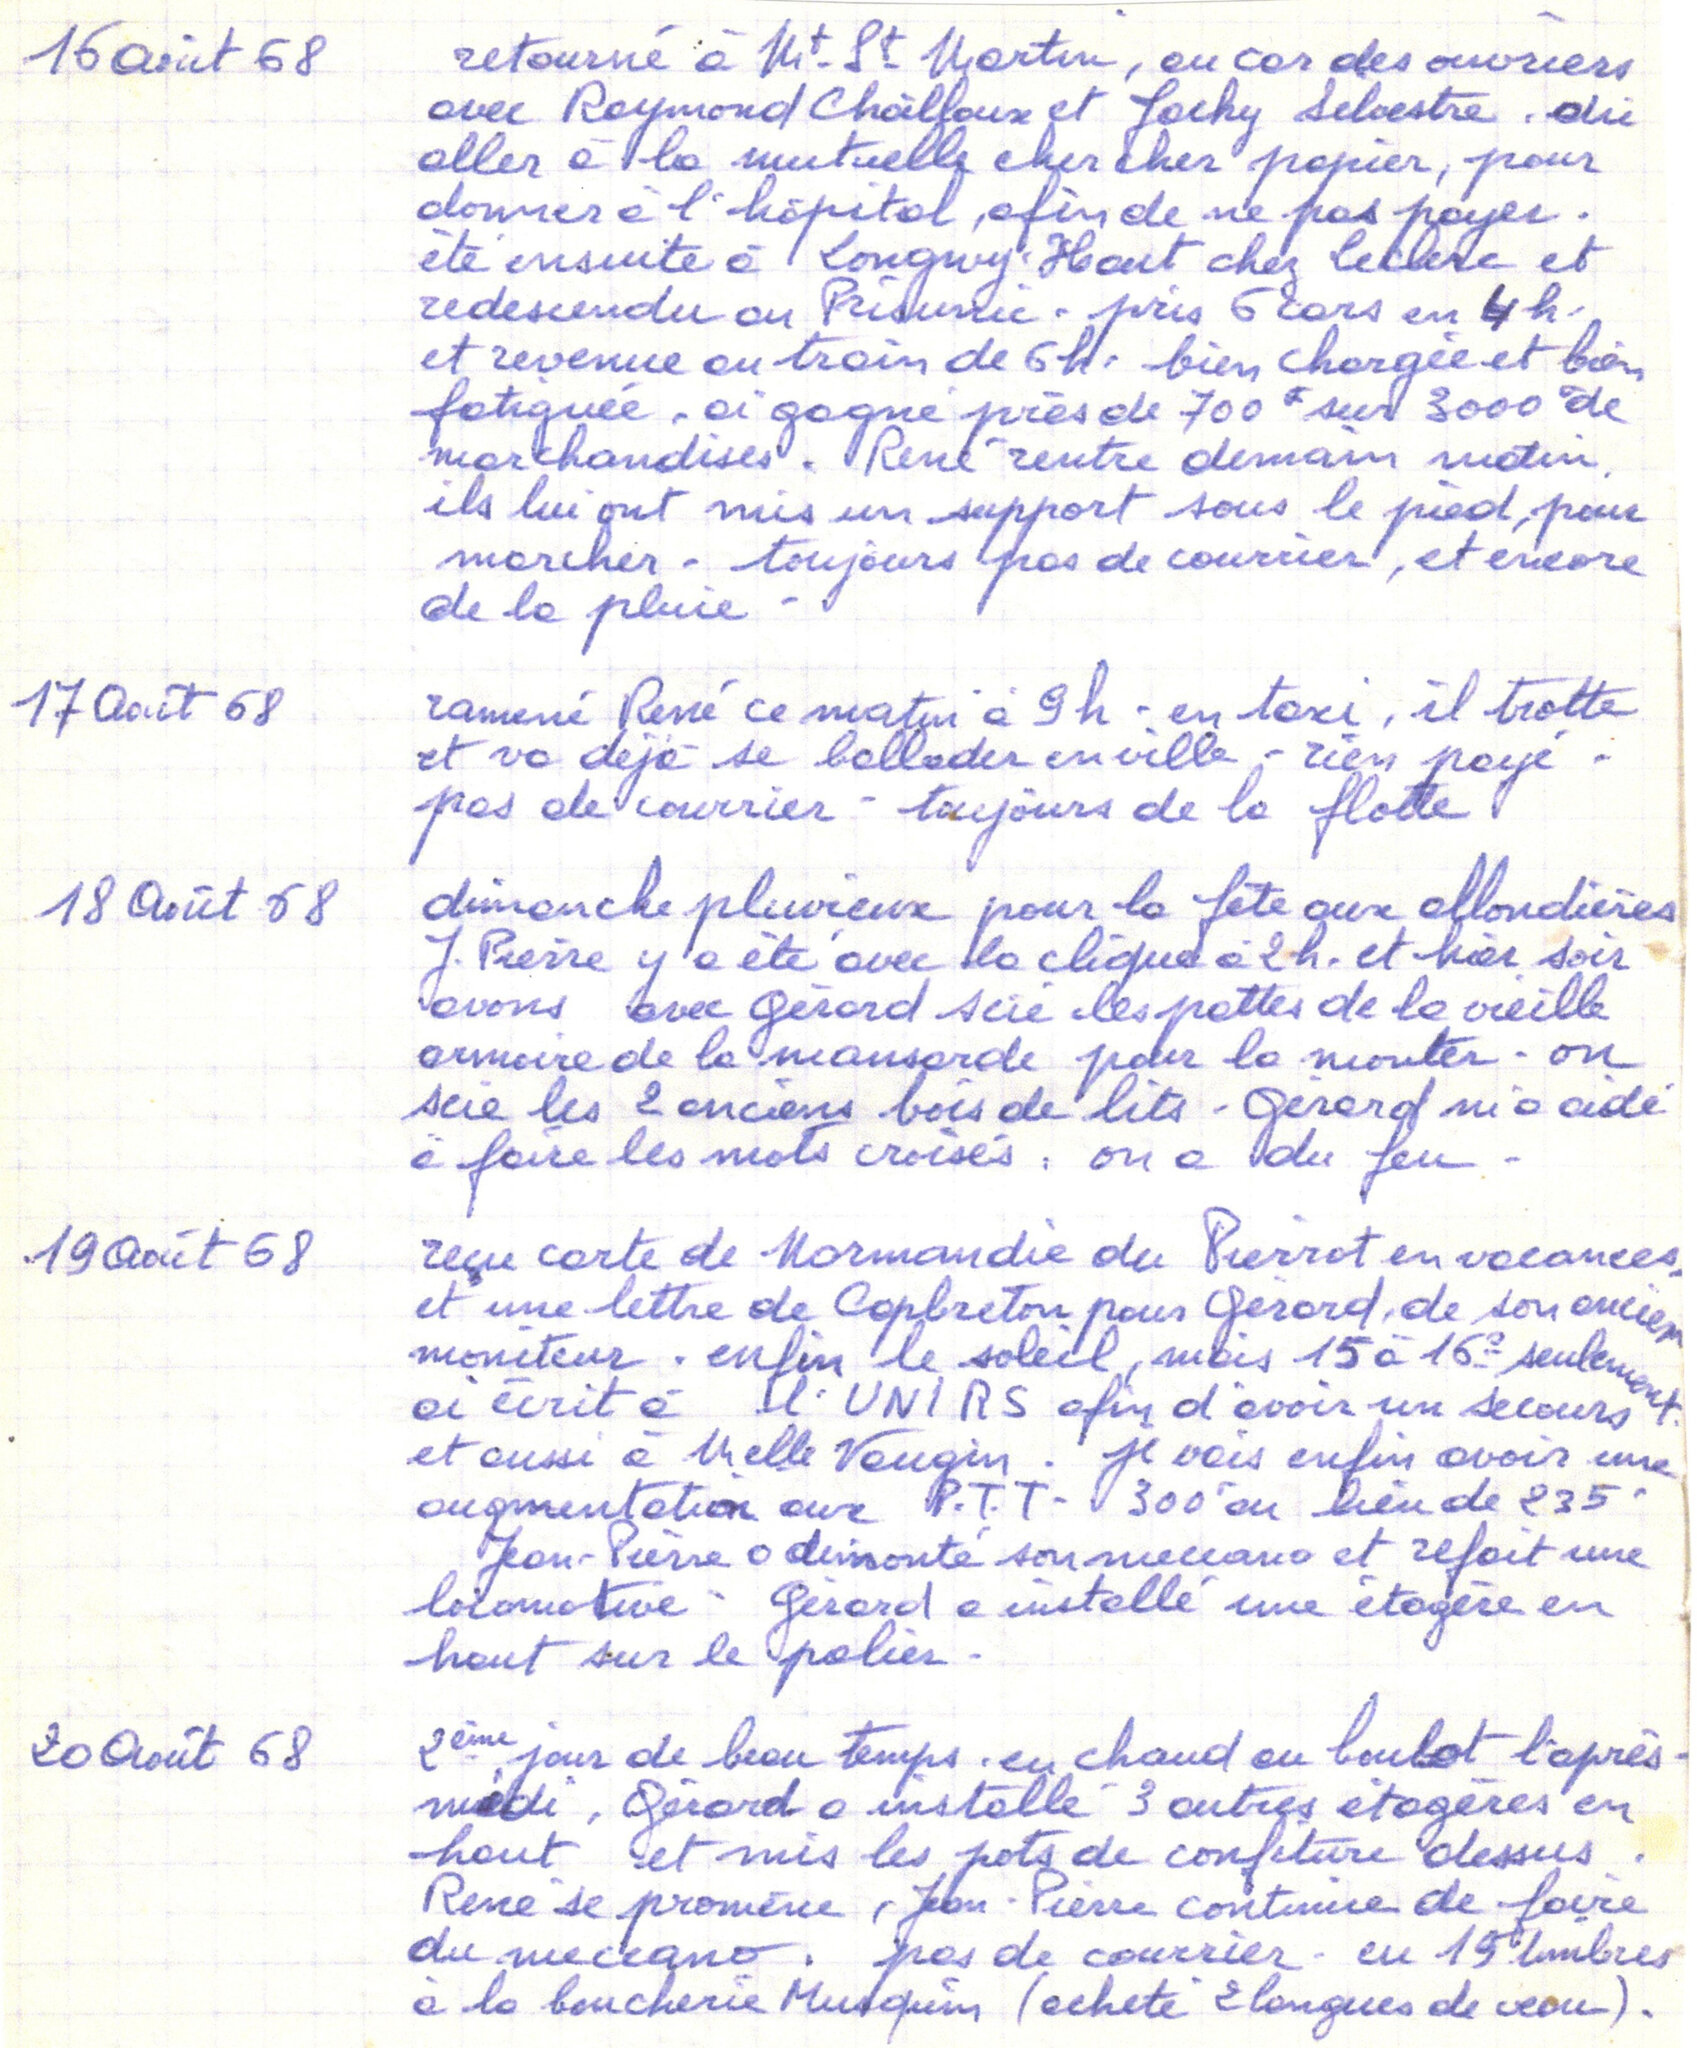 16 août 68 retourné à Mt. St Martin, au car des ouvriers
avec Raymond Chailloux et Jacky Selvestre. dû
aller à la mutuelle chercher papier, pour
donner à l'hôpital, afin de ne pas payer.
été ensuite à Longwy-Haut chez Leclerc et
redescendu au Prisunic - pris 6 cars en 4h.
et revenue au train de 6h. bien chargée et bien
fatiguée. ai gagné près de 700 sur 3000 de
marchandises. René rentre demain matin.
ils lui ont mis un support sous le pied, pour
marcher - toujours pas de courrier, et encore
de la pluie -
17 Août 68 ramené René ce matin à 9h - en taxi, il trotte
et va déjà se ballader en ville - rien payé -
pas de courrier - toujours de la flotte
18 Août 68 dimanche pluvieux pour la fête aux allondières
J. Pierre y a été avec la clique à 2h. et hier soir
avons avec Gérard scié les pattes de la vieille
armoire de la mansarde pour la monter - on
scie les 2 anciens bois de lits - Gérard m'a aidé
à faire les mots croisés. on a du feu -
19 Août 68 reçu carte de Normandie du Pierrot en vacances,
et une lettre de Capbreton pour Gérard, de son ancien
moniteur. enfin le soleil, mais 15 à 16° seulement.
ai écrit à l'UNIRS afin d'avoir un secours
et aussi à Melle Vaugin. je vais enfin avoir une
augmentation aux P.T.T - 300 au lieu de 235
Jean-Pierre a démonté son meccano et refait une
locomotive - Gérard a installé une étagère en
haut sur le palier -
20 Août 68 2ème jour de beau temps. eu chaud au boulot l'après-
midi, Gérard a installé 3 autres étagères en
haut et mis les pots de confiture dessus.
René se promène, Jean-Pierre continue de faire
du meccano. pas de courrier - eu 15 timbres
à la boucherie Musquin (acheté 2 langues de veau).